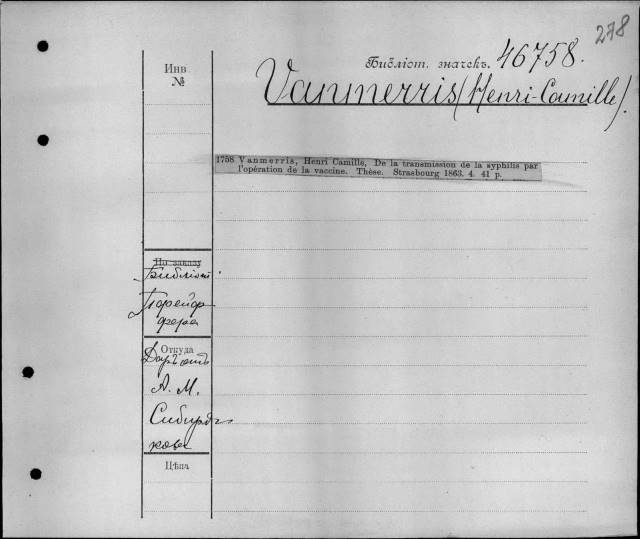 278
Библіот. значекъ. 46758.
Инв.
№
Vanmerris (Henri-Camille).
1758 Vanmerris, Henri Camille, De la transmission de la syphilis par
l'opération de la vaccine. Thèse. Strasbourg 1863. 4. 41 p.
По заказу
Библіот
Порейф
фера
Откуда
Даръ отъ
А. М.
Сибиря-
кова
Цѣна